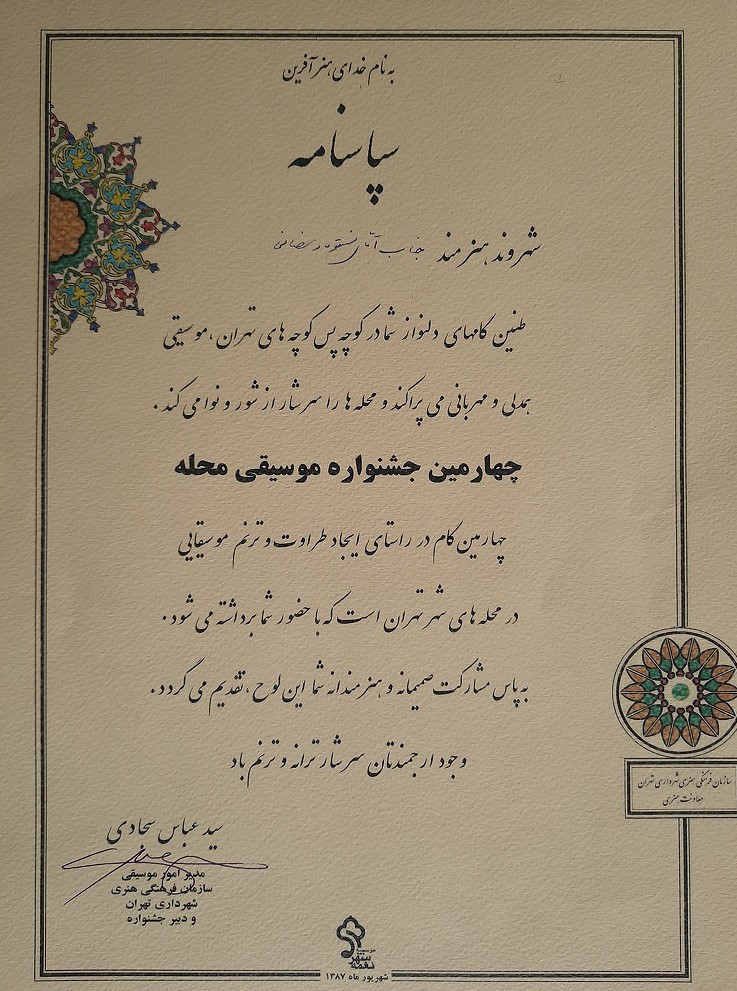 به نام خدای هنر آفرین
سپاسنامه
شهروند هنرمند جناب آقای رمضانی
طنین گامهای دلنواز شما در کوچه پس کوچه های تهران ، موسیقی
همدلی و مهربانی می پراکند و محله ها را سرشار از شور و نوا می کند .
چهارمین جشنواره موسیقی محله
چهارمین گام در راستای ایجاد طراوت و ترنم موسیقایی
در محله های شهر تهران است که با حضور شما برداشته می شود .
به پاس مشارکت صمیمانه و هنرمندانه شما این لوح ، تقدیم می گردد .
وجود ارجمندتان سرشار ترانه و ترنم باد
سازمان فرهنگی هنری شهرداری تهران
معاونت هنری
سید عباس سجادی
مدیر امور موسیقی
سازمان فرهنگی هنری
شهرداری تهران
و دبیر جشنواره
موسسه
نغمه شهر
شهریور ماه ۱۳۸۷